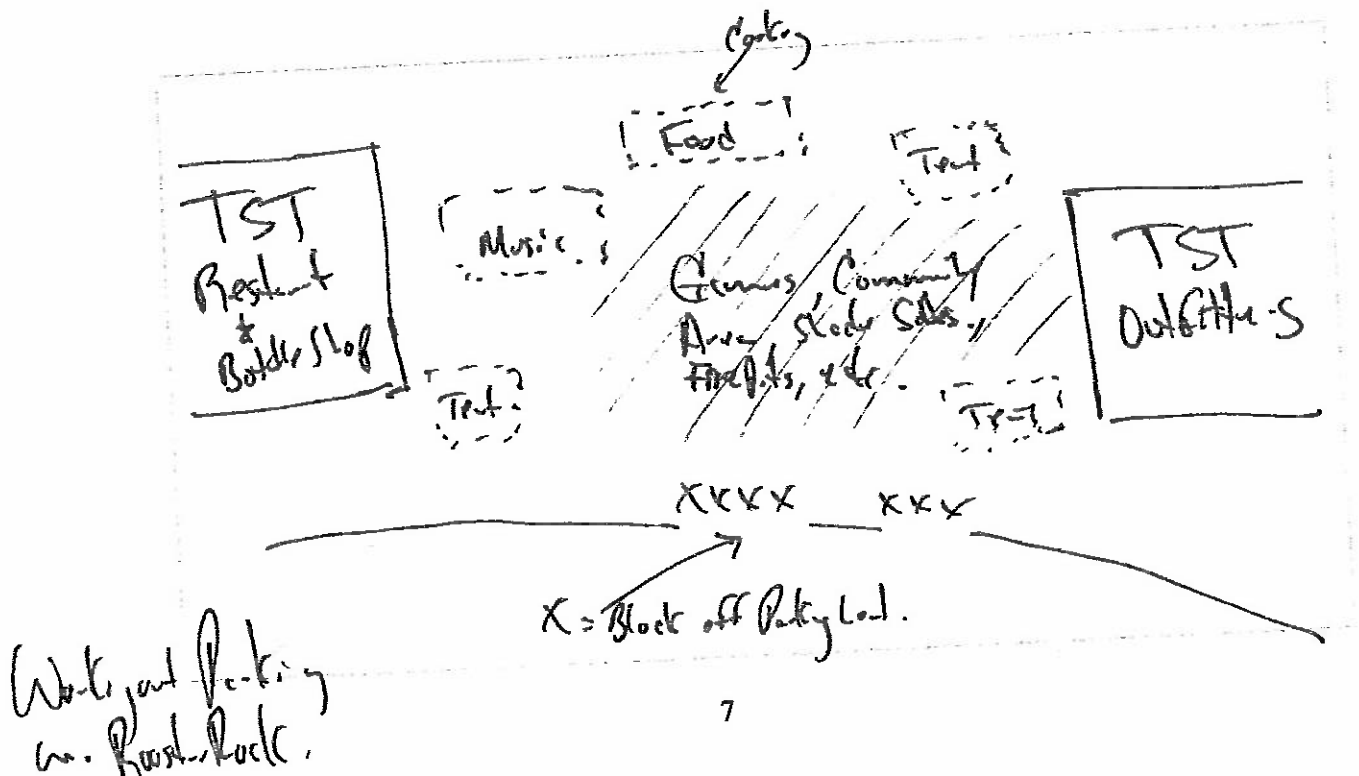 Food
Tent
TST
Restaurant
&
Bottle Shop
Music
Games, Community
Area, 
Fire Pits, etc.
TST
Outfitters
Tent
Tent
XXXX XXX
X = Block off Parking Lot.
Working out Parking
w. Rooster Rock.
7